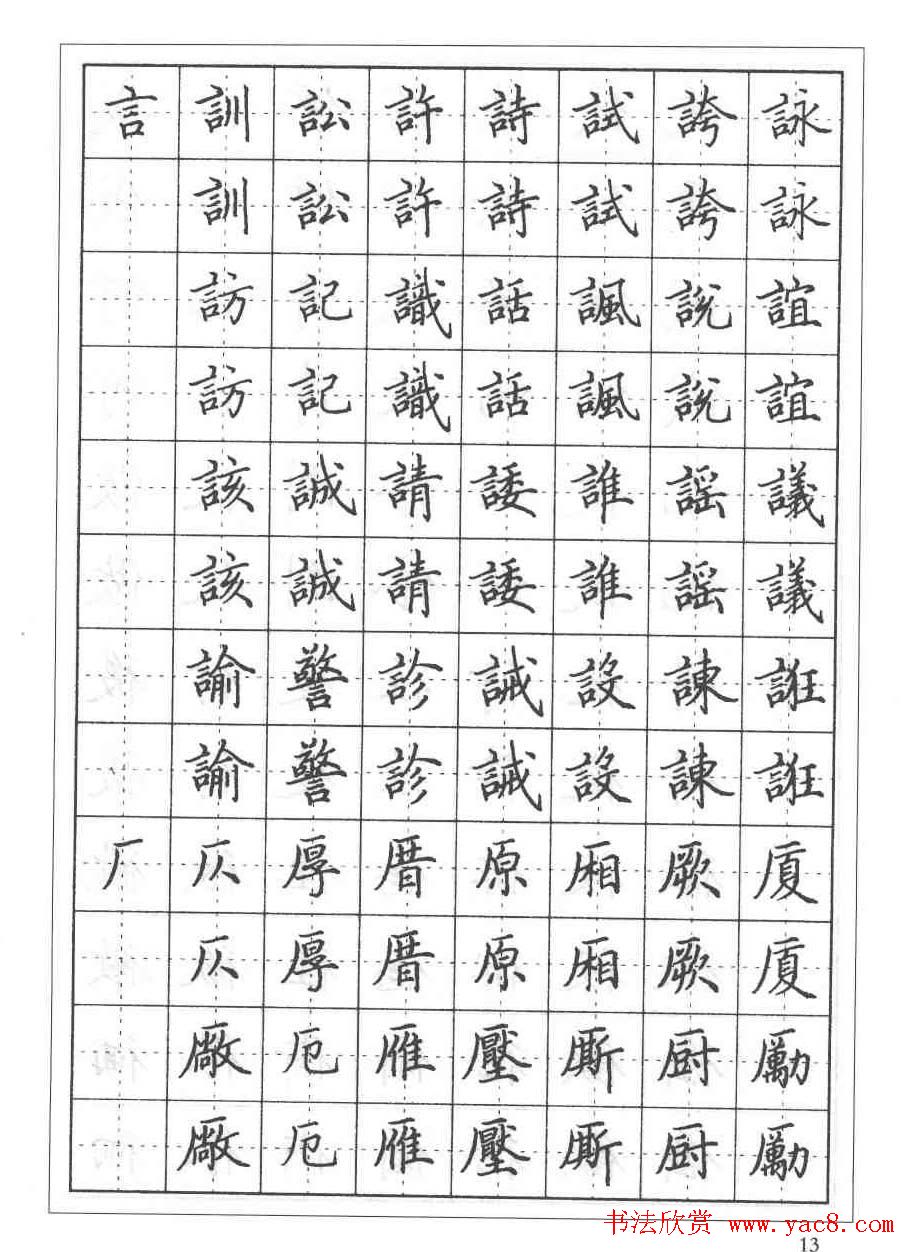 言訓訟許詩試誇詠
訓訟許詩試誇詠
訪記識話諷説誼
訪記識話諷説誼
該誠請諉誰謡議
該誠請諉誰謡議
諭警診誡設諫誑
諭警診誡設諫誑
厂仄厚厝原厢厥厦
仄厚厝原厢厥厦
廠厄雁壓厮厨勵
廠厄雁壓厮厨勵
书法欣赏 www.yac8.com
13